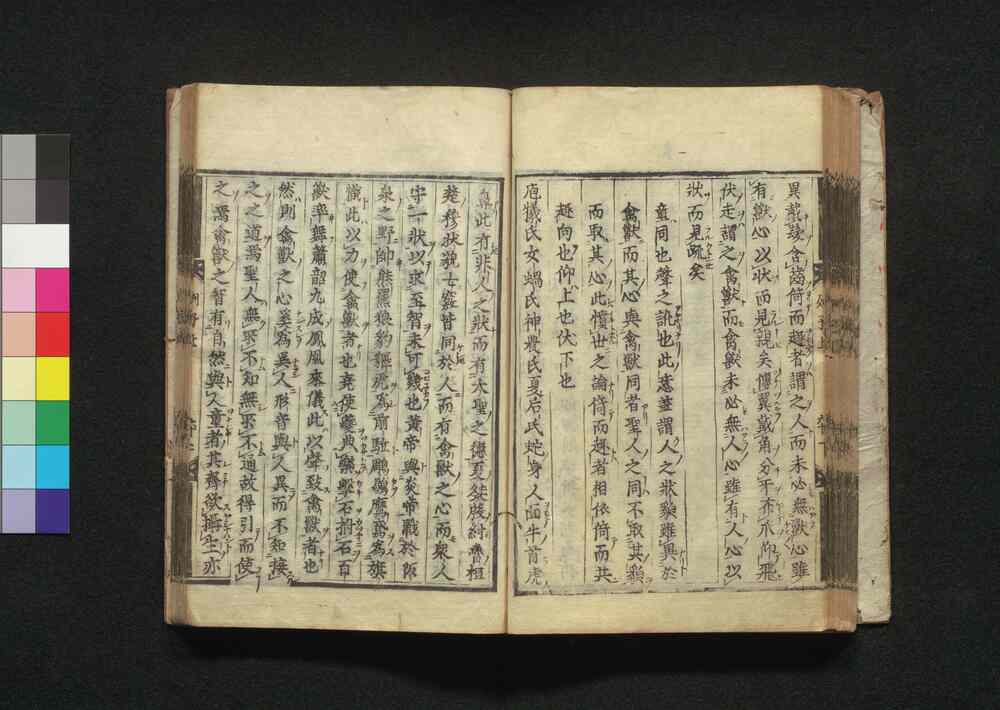 異戴髮含齒倚而趣者謂之人而未必無獸心雖
有獸心以狀而見親矣傅翼戴角分牙布爪仰飛
伏走謂之禽獸而禽獸未必無人心雖有人心以
狀而見疏矣
童同也聲之訛也此意蓋謂人之狀貌雖異於
禽獸而其心與禽獸同者聖人之同不取其貌
而取其心此憤世之論倚而趣者相依倚而共
趍向也仰上也伏下也
庖犧氏女蝸氏神農氏夏后氏蛇身人面牛首虎
鼻此有非人之狀而有大聖之德夏桀殷紂魯桓
楚穆狀貌七竅皆同於人而有禽獸之心而衆人
守一狀以求至智未可幾也黃帝與炎帝戰於阪
泉之野帥熊羆狼豹貙虎為前驅鵰鶡鷹鳶為旗
幟此以力使禽獸者也堯使夔典樂擊石拊石百
獸率舞簫韶九成鳳凰來儀此以聲致禽獸者也
然則禽獸之心奚為異人形音與人異而不知接
之之道焉聖人無所不知無所不通故得引而使
之焉禽獸之智有自然與人童者其齊欲攝生亦